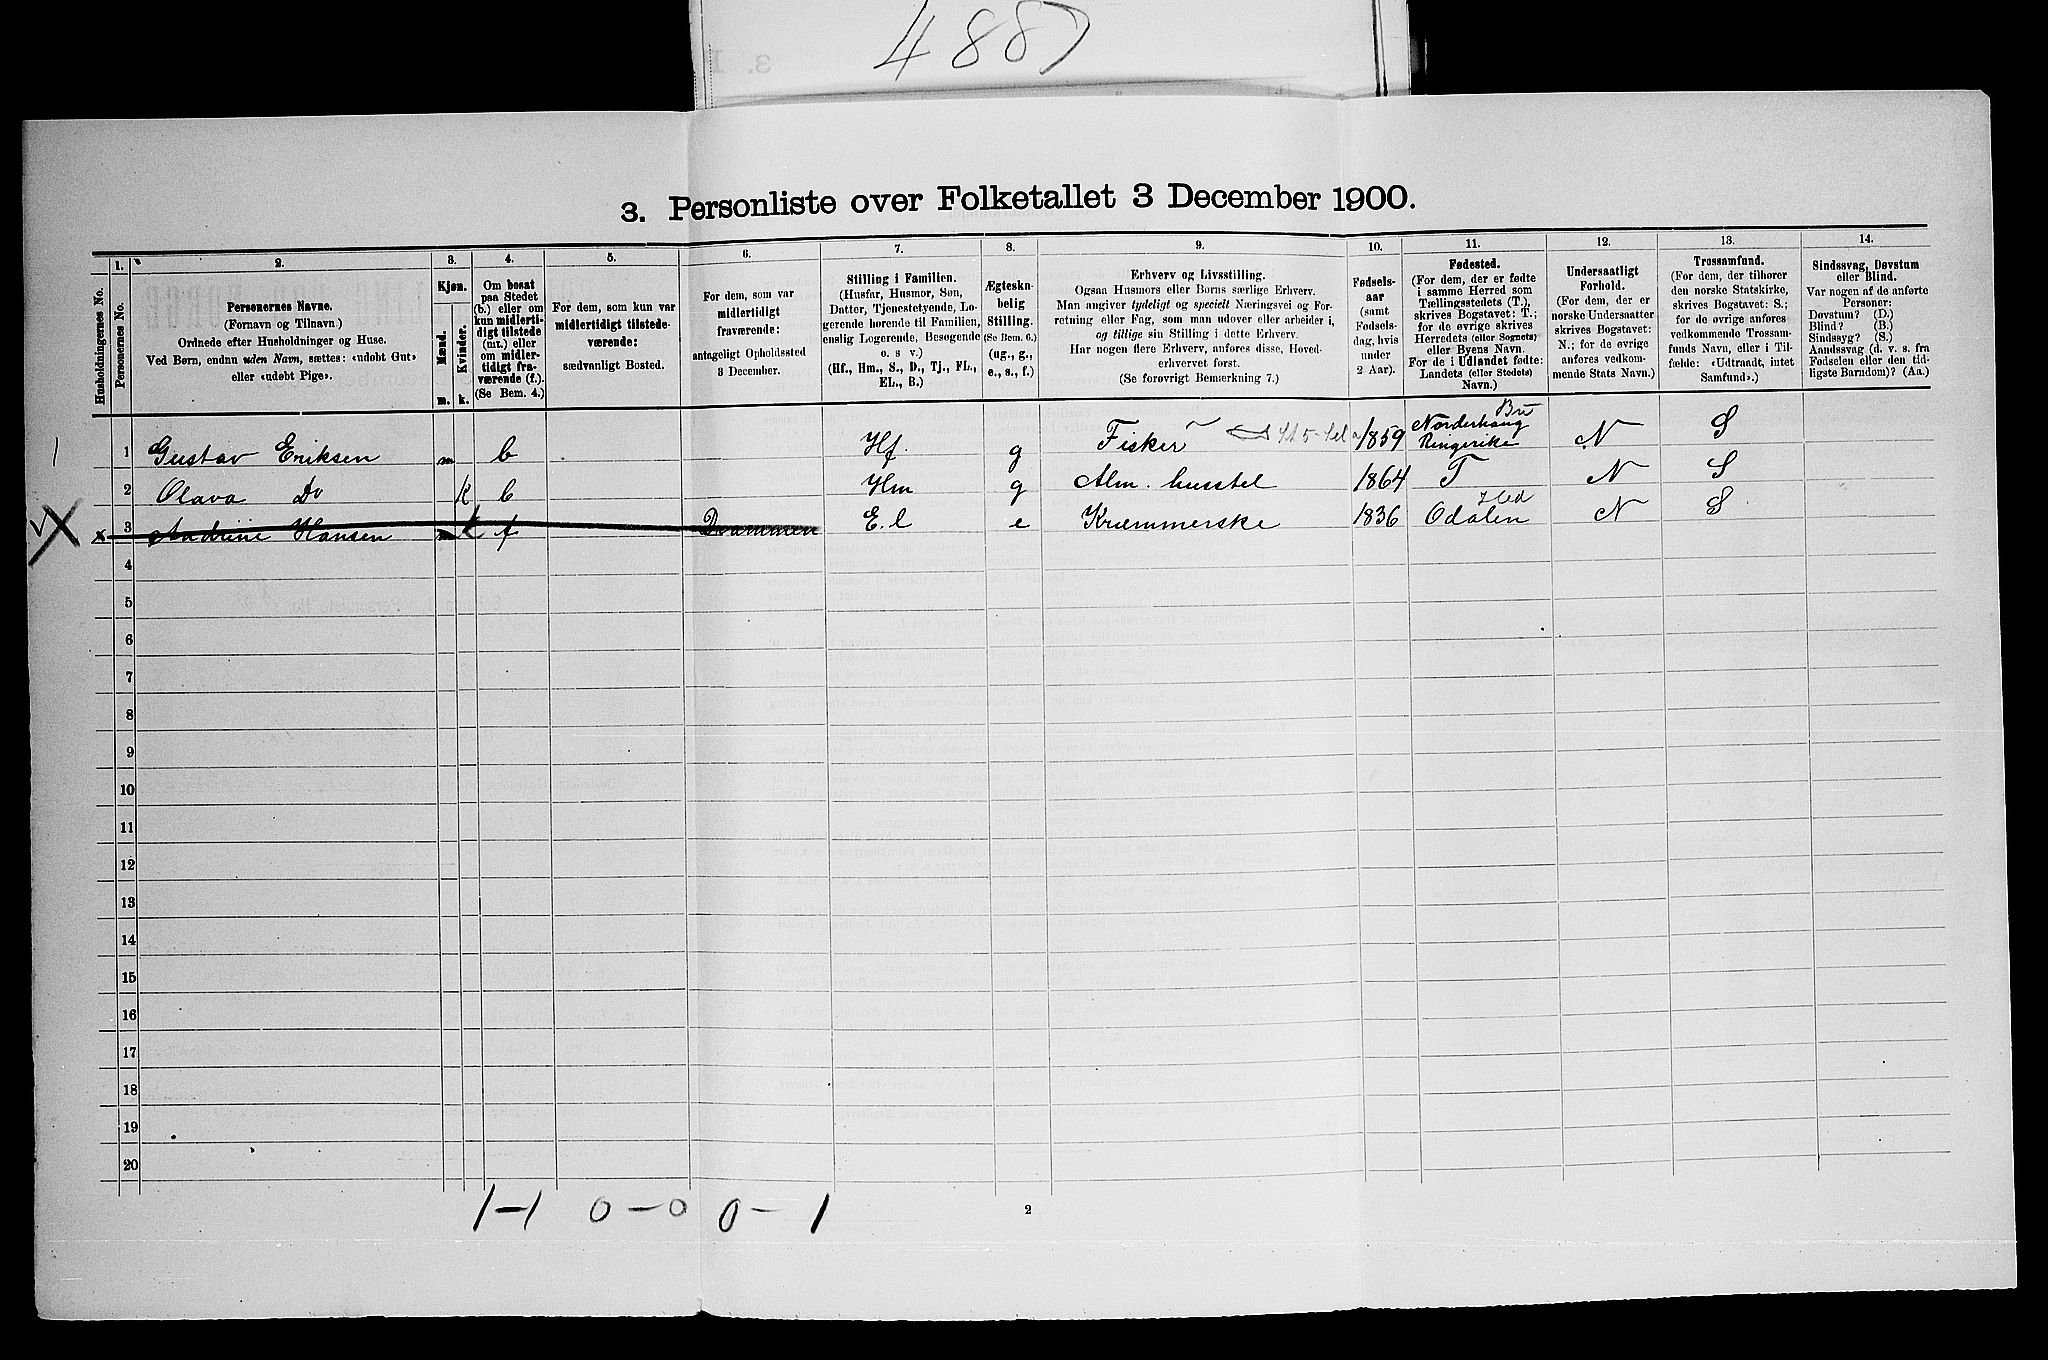 4887
3. Personliste over Folketallet 3 December 1900.
Husholdningernes No.
1.
Personernes No.
2.
Personernes Navne.
(Fornavn og Tilnavn.)
Ordnede efter Husholdninger og Huse.
Ved Børn, endnu uden Navn, sættes: «udøbt Gut»
eller «udøbt Pige».
3.
Kjøn.
Mænd.
Kvinder.
m.
k.
4.
Om bosat
paa Stedet
(b.) eller om
kun midlerti-
digt tilstede
(mt.) eller
om midler-
tidigt fra-
værende (f.).
(Se Bem. 4.)
5.
For dem, som kun var
midlertidigt tilstede-
værende:
sædvanligt Bosted.
6.
For dem, som var
midlertidigt
fraværende:
antageligt Opholdssted
3 December.
7.
Stilling i Familien.
(Husfar, Husmor, Søn,
Datter, Tjenestetyende, Lo-
gerende hørende til Familien,
enslig Logerende, Besøgende
o. s v.)
(Hf., Hm., S., D., Tj., FL.,
EL., B.)
8.
Ægteska-
belig
Stilling.
(Se Bem. 6.)
(ug., g.,
e., s., f.)
9.
Erhverv og Livsstilling.
Ogsaa Husmors eller Børns særlige Erhverv.
Man angiver tydeligt og specielt Næringsvei og For-
retning eller Fag, som man udøver eller arbeider i,
og tillige sin Stilling i dette Erhverv.
Har nogen flere Erhverv, anføres disse, Hoved-
erhvervet først.
(Se forøvrigt Bemerkning 7.)
10.
Fødsels-
aar
(samt
Fødsels-
dag, hvis
under
2 Aar).
11.
Fødested.
(For dem, der er fødte
i samme Herred som
Tællingsstedets (T.),
skrives Bogstavet: T.;
for de øvrige skrives
Herredets (eller Sognets)
eller Byens Navn.
For de i Udlandet fødte:
Landets (eller Stedets)
Navn.)
12.
Undersaatligt
Forhold.
(For dem, der er
norske Undersaatter
skrives Bogstavet:
N.; for de øvrige
anføres vedkom-
mende Stats Navn.)
13.
Trossamfund.
(For dem, der tilhører
den norske Statskirke,
skrives Bogstavet: S.;
for de øvrige anføres
vedkommende Trossam-
funds Navn, eller i Til-
fælde: «Udtraadt, intet
Samfund».)
14.
Sindssvag, Døvstum
eller Blind.
Var nogen af de anførte
Personer:
Døvstum? (D.)
Blind? (B.)
Sindssyg? (S.)
Aandssvag (d. v. s. fra
Fødselen eller den tid-
ligste Barndom)? (Aa.)
1 Gustav Eriksen m b Hf. g Fisker 1859 Norderhaug Bu Ringerike N S
2 Olava Do k b Hm g Alm. husstel 1864 T N S
x 3 Andrine Hansen m k f Drammen E.l e Kræmmerske 1836 Odalen Hed N S
4
5
6
7
8
9
10
11
12
13
14
15
16
17
18
19
20
1-1 0-0 0-1
2